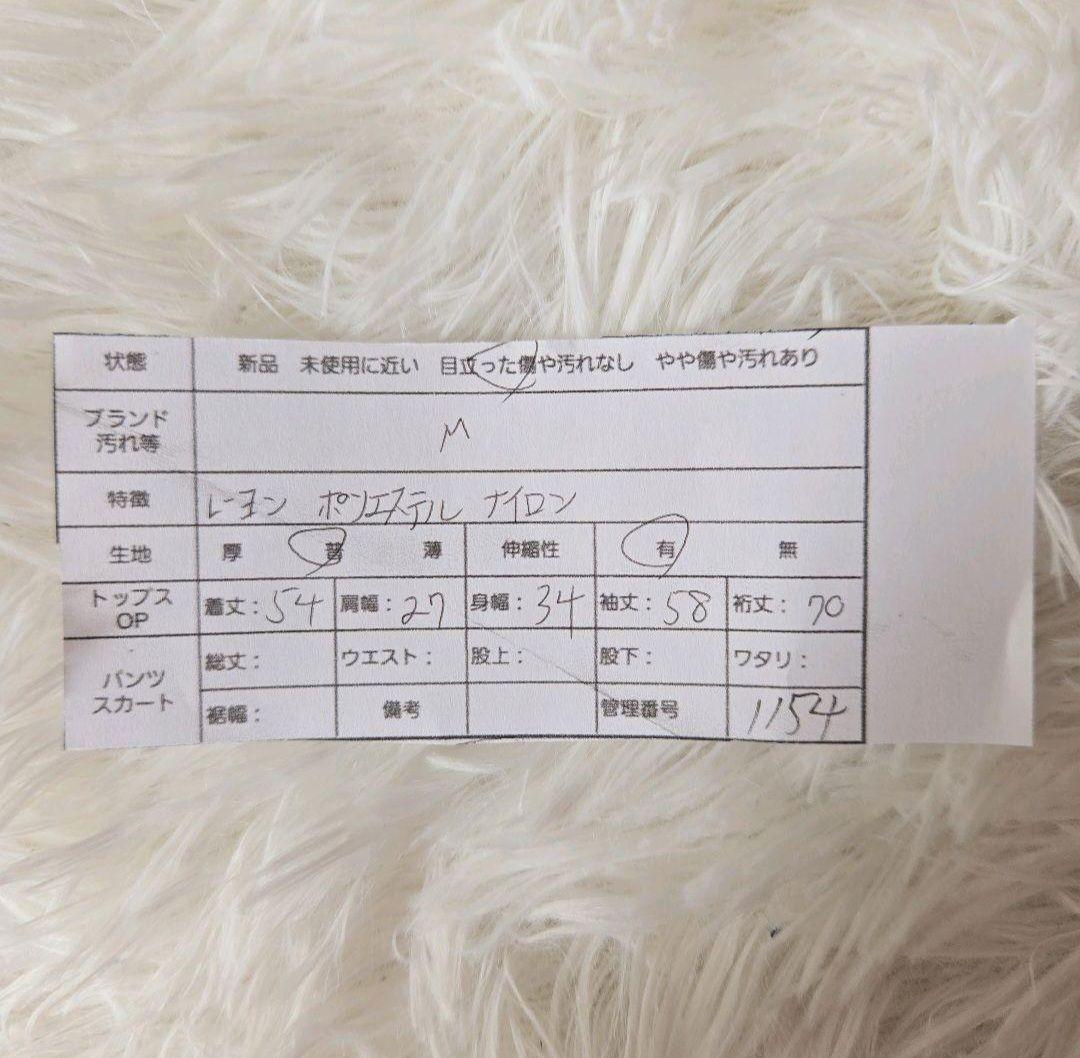 状態 新品 未使用に近い 目立った傷や汚れなし やや傷や汚れあり
ブランド
汚れ等 M
特徴 レーヨン ポリエステル ナイロン
生地 厚 普 薄 伸縮性 有 無
トップス
OP 着丈：54 肩幅：27 身幅：34 袖丈：58 裄丈：70
パンツ
スカート 総丈： ウエスト： 股上： 股下： ワタリ：
裾幅： 備考 管理番号 1154